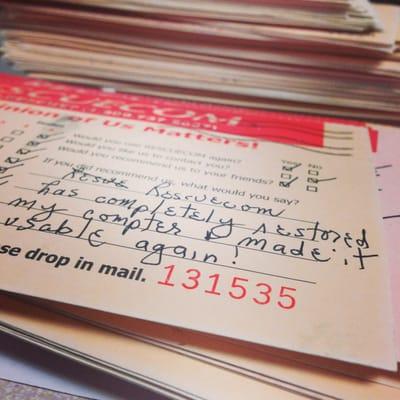 RESCUECOM
inion of Us Matters!
Would you use RESCUECOM again?
Would you like us to contact you?
Would you recommend us to your friends?
Yes No
If you did recommend us, what would you say?
Rescuecom
has completely restored
my compter & made it
usable again!
se drop in mail. 131535